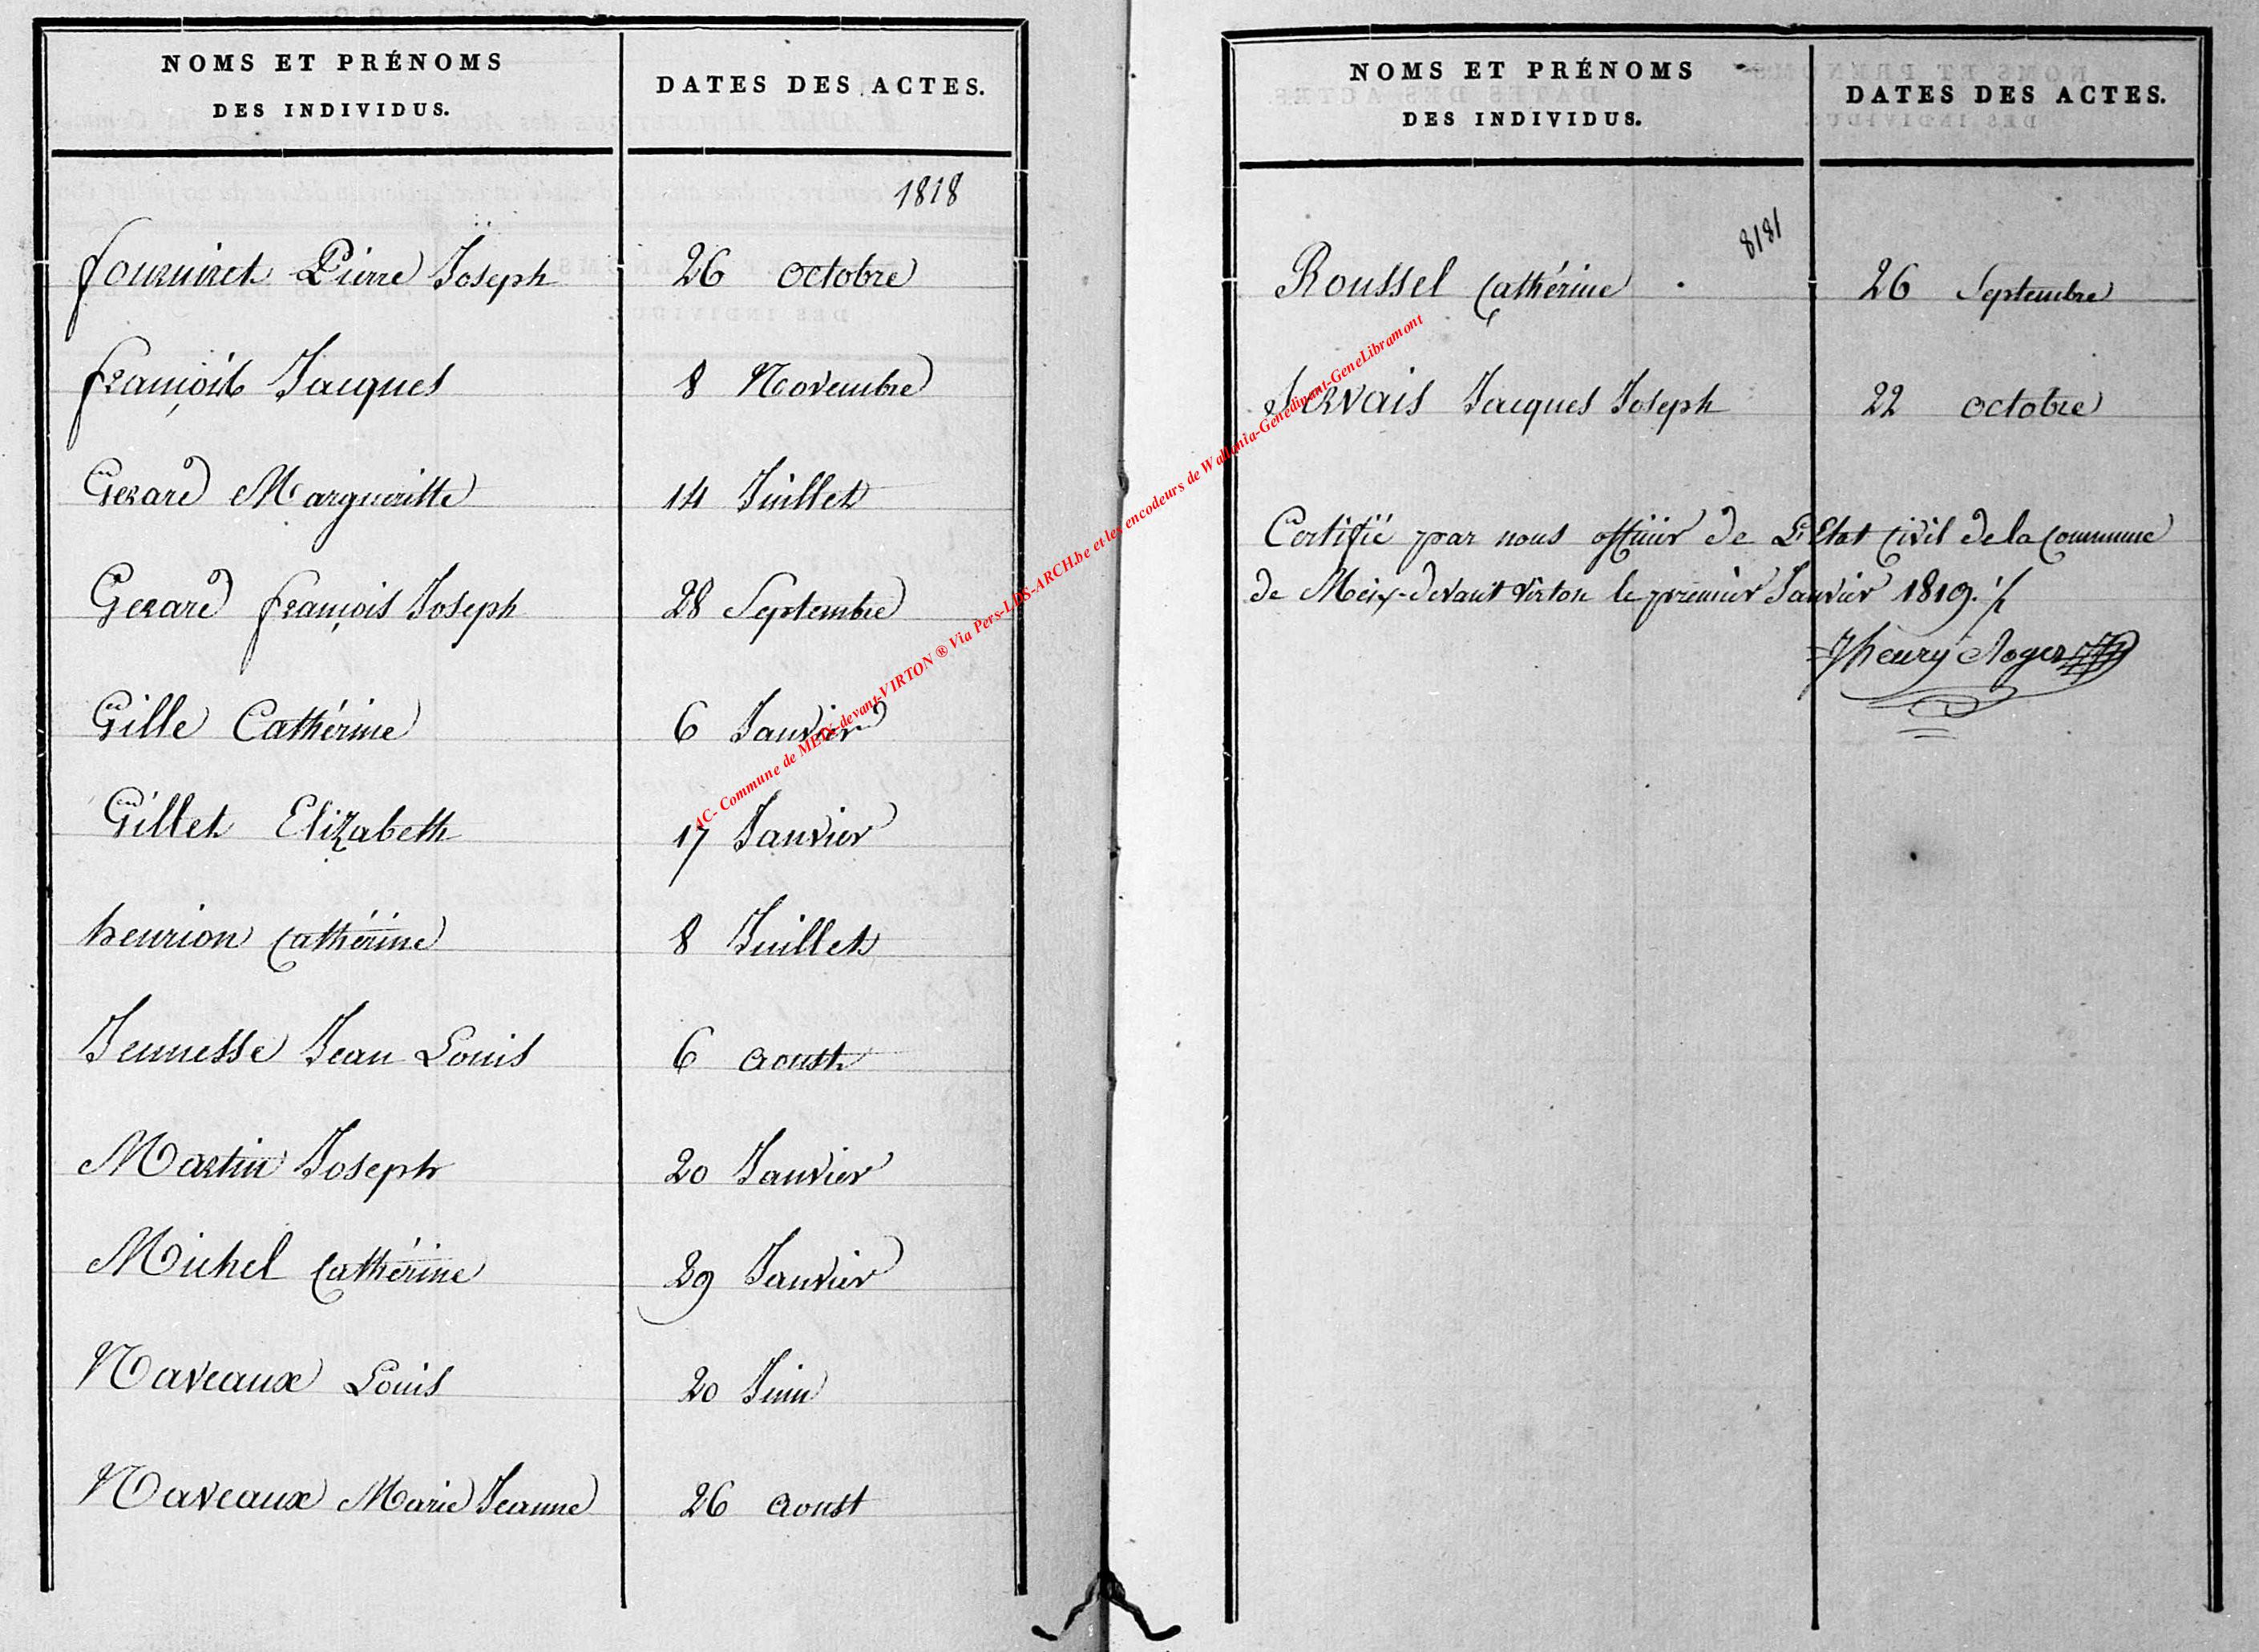 NOMS ET PRÉNOMS
DES INDIVIDUS.
DATES DES ACTES.
1818
fourniret Pierre Joseph 26 octobre
françois Jacques 8 Novembre
Gerard Margueritte 14 Juillet
Gerard françois Joseph 28 Septembre
Gille Cathérine 6 Janvier
Gillet Elizabeth 17 Janvier
henrion Cathérine 8 Juillet
Jeunesse Jean Louis 6 aoust
Martin Joseph 20 Janvier
Michel Cathérine 29 Janvier
Naveaux Louis 20 Juin
Naveaux Marie Jeanne 26 aoust
NOMS ET PRÉNOMS
DES INDIVIDUS.
DATES DES ACTES.
1818
Roussel Cathérine 26 Septembre
Servais Jacques Joseph 22 octobre
Certifié par nous officier de L'Etat Civil de la Commune
de Meix-devant Virton le premier Janvier 1819. /.
henry Roger
AC- Commune de MEIX-devant-VIRTON ® Via Pers-LDS-ARCH.be et les encodeurs de Wallonia-Genedinant-GeneLibramont